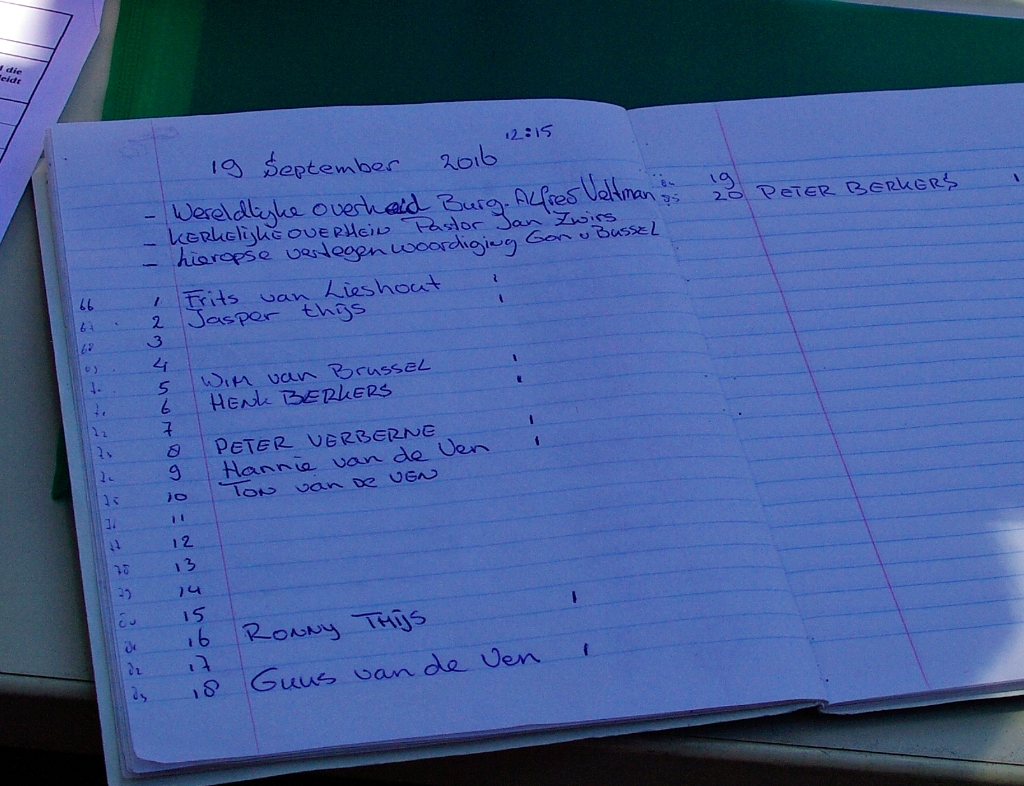 d die
leidt
12:15
19 September 2016
- Wereldlijke overheid Burg. Alfred Veltman
- KERKELIJKE OVERHEID Pastor Jan Zwirs
- hieropse vertegenwoordiging Gon v Bussel
66 1 Frits van Lieshout
67 2 Jasper thijs
68 3
69 4
70 5 Wim van Brussel
71 6 HENK BERKERS
72 7
73 8 PETER VERBERNE
74 9 Hannie van de Ven
75 10 Ton van de Ven
76 11
77 12
78 13
79 14
80 15
81 16 RONNY THIJS
82 17
83 18 Guus van de Ven
84 19
85 20 PETER BERKERS